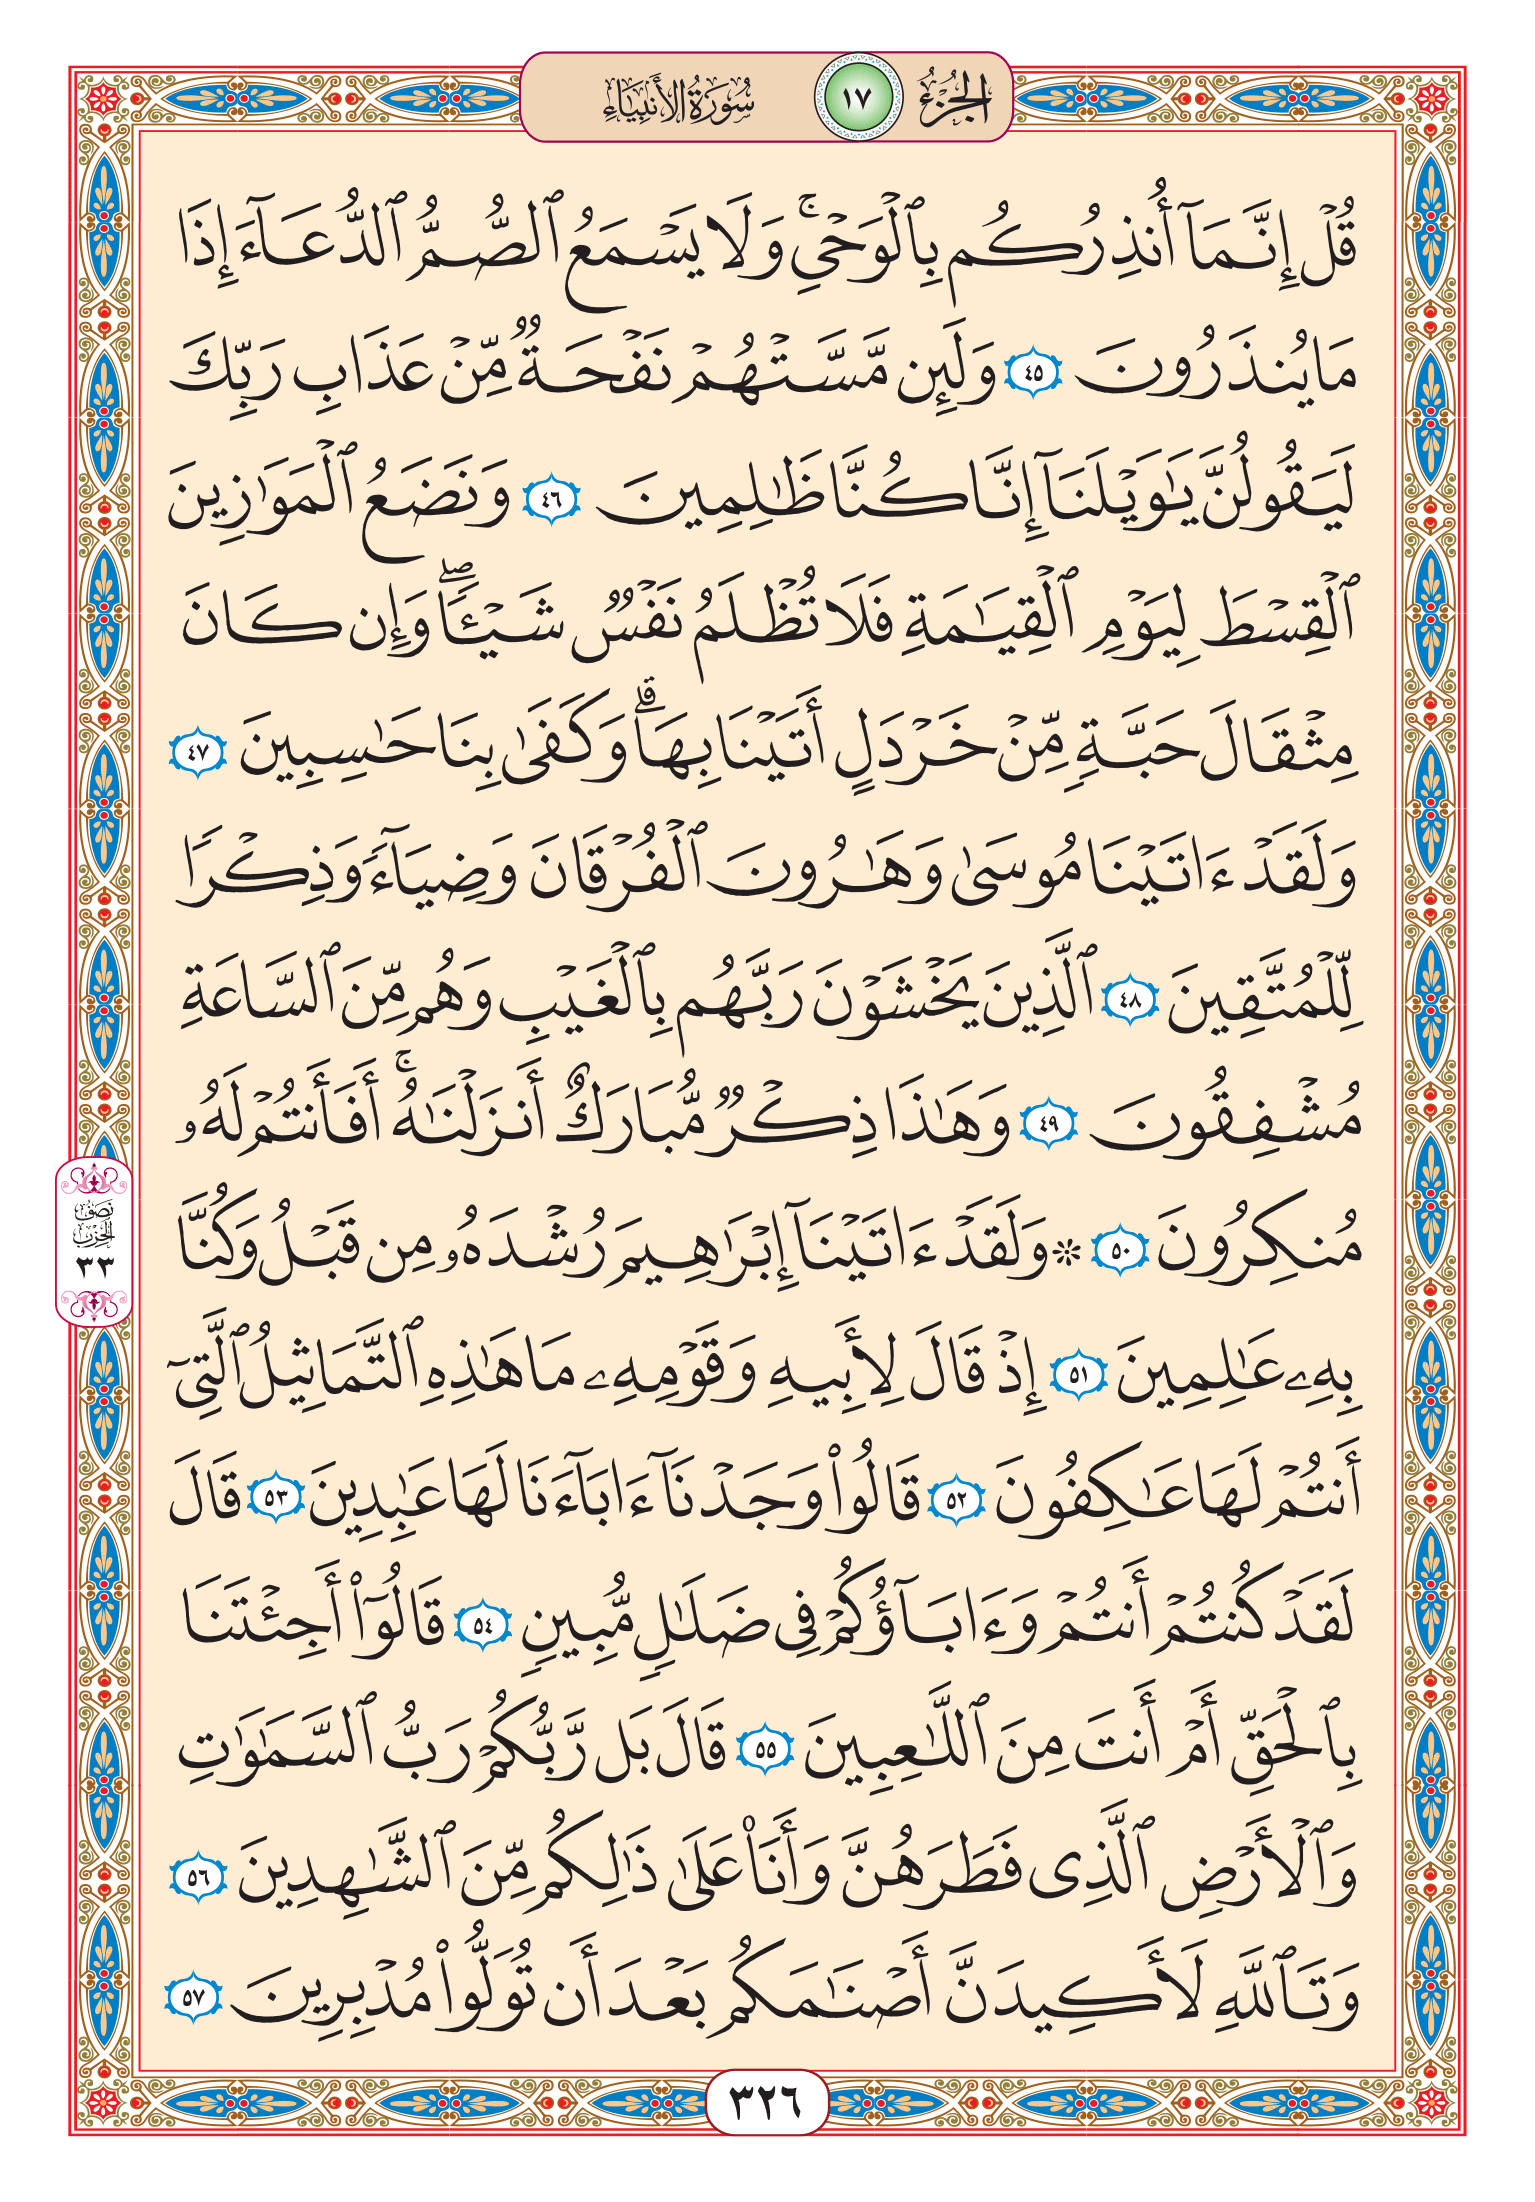 الجزء ١٧ سورة الأنبياء
قُلۡ إِنَّمَآ أُنذِرُكُم بِٱلۡوَحۡيِۚ وَلَا يَسۡمَعُ ٱلصُّمُّ ٱلدُّعَآءَ إِذَا
مَا يُنذَرُونَ ٤٥ وَلَئِن مَّسَّتۡهُمۡ نَفۡحَةٞ مِّنۡ عَذَابِ رَبِّكَ
لَيَقُولُنَّ يَٰوَيۡلَنَآ إِنَّا كُنَّا ظَٰلِمِينَ ٤٦ وَنَضَعُ ٱلۡمَوَٰزِينَ
ٱلۡقِسۡطَ لِيَوۡمِ ٱلۡقِيَٰمَةِ فَلَا تُظۡلَمُ نَفۡسٞ شَيۡـٔٗاۖ وَإِن كَانَ
مِثۡقَالَ حَبَّةٖ مِّنۡ خَرۡدَلٍ أَتَيۡنَا بِهَاۗ وَكَفَىٰ بِنَا حَٰسِبِينَ ٤٧
وَلَقَدۡ ءَاتَيۡنَا مُوسَىٰ وَهَٰرُونَ ٱلۡفُرۡقَانَ وَضِيَآءٗ وَذِكۡرٗا
لِّلۡمُتَّقِينَ ٤٨ ٱلَّذِينَ يَخۡشَوۡنَ رَبَّهُم بِٱلۡغَيۡبِ وَهُم مِّنَ ٱلسَّاعَةِ
مُشۡفِقُونَ ٤٩ وَهَٰذَا ذِكۡرٞ مُّبَارَكٌ أَنزَلۡنَٰهُۚ أَفَأَنتُمۡ لَهُۥ
مُنكِرُونَ ٥٠ ۞ وَلَقَدۡ ءَاتَيۡنَآ إِبۡرَٰهِيمَ رُشۡدَهُۥ مِن قَبۡلُ وَكُنَّا
بِهِۦ عَٰلِمِينَ ٥١ إِذۡ قَالَ لِأَبِيهِ وَقَوۡمِهِۦ مَا هَٰذِهِ ٱلتَّمَاثِيلُ ٱلَّتِيٓ
أَنتُمۡ لَهَا عَٰكِفُونَ ٥٢ قَالُواْ وَجَدۡنَآ ءَابَآءَنَا لَهَا عَٰبِدِينَ ٥٣ قَالَ
لَقَدۡ كُنتُمۡ أَنتُمۡ وَءَابَآؤُكُمۡ فِي ضَلَٰلٖ مُّبِينٖ ٥٤ قَالُوٓاْ أَجِئۡتَنَا
بِٱلۡحَقِّ أَمۡ أَنتَ مِنَ ٱللَّٰعِبِينَ ٥٥ قَالَ بَل رَّبُّكُمۡ رَبُّ ٱلسَّمَٰوَٰتِ
وَٱلۡأَرۡضِ ٱلَّذِي فَطَرَهُنَّ وَأَنَا۠ عَلَىٰ ذَٰلِكُم مِّنَ ٱلشَّٰهِدِينَ ٥٦
وَتَٱللَّهِ لَأَكِيدَنَّ أَصۡنَٰمَكُم بَعۡدَ أَن تُوَلُّواْ مُدۡبِرِينَ ٥٧
نصف
الحزب
٣٣
٣٢٦